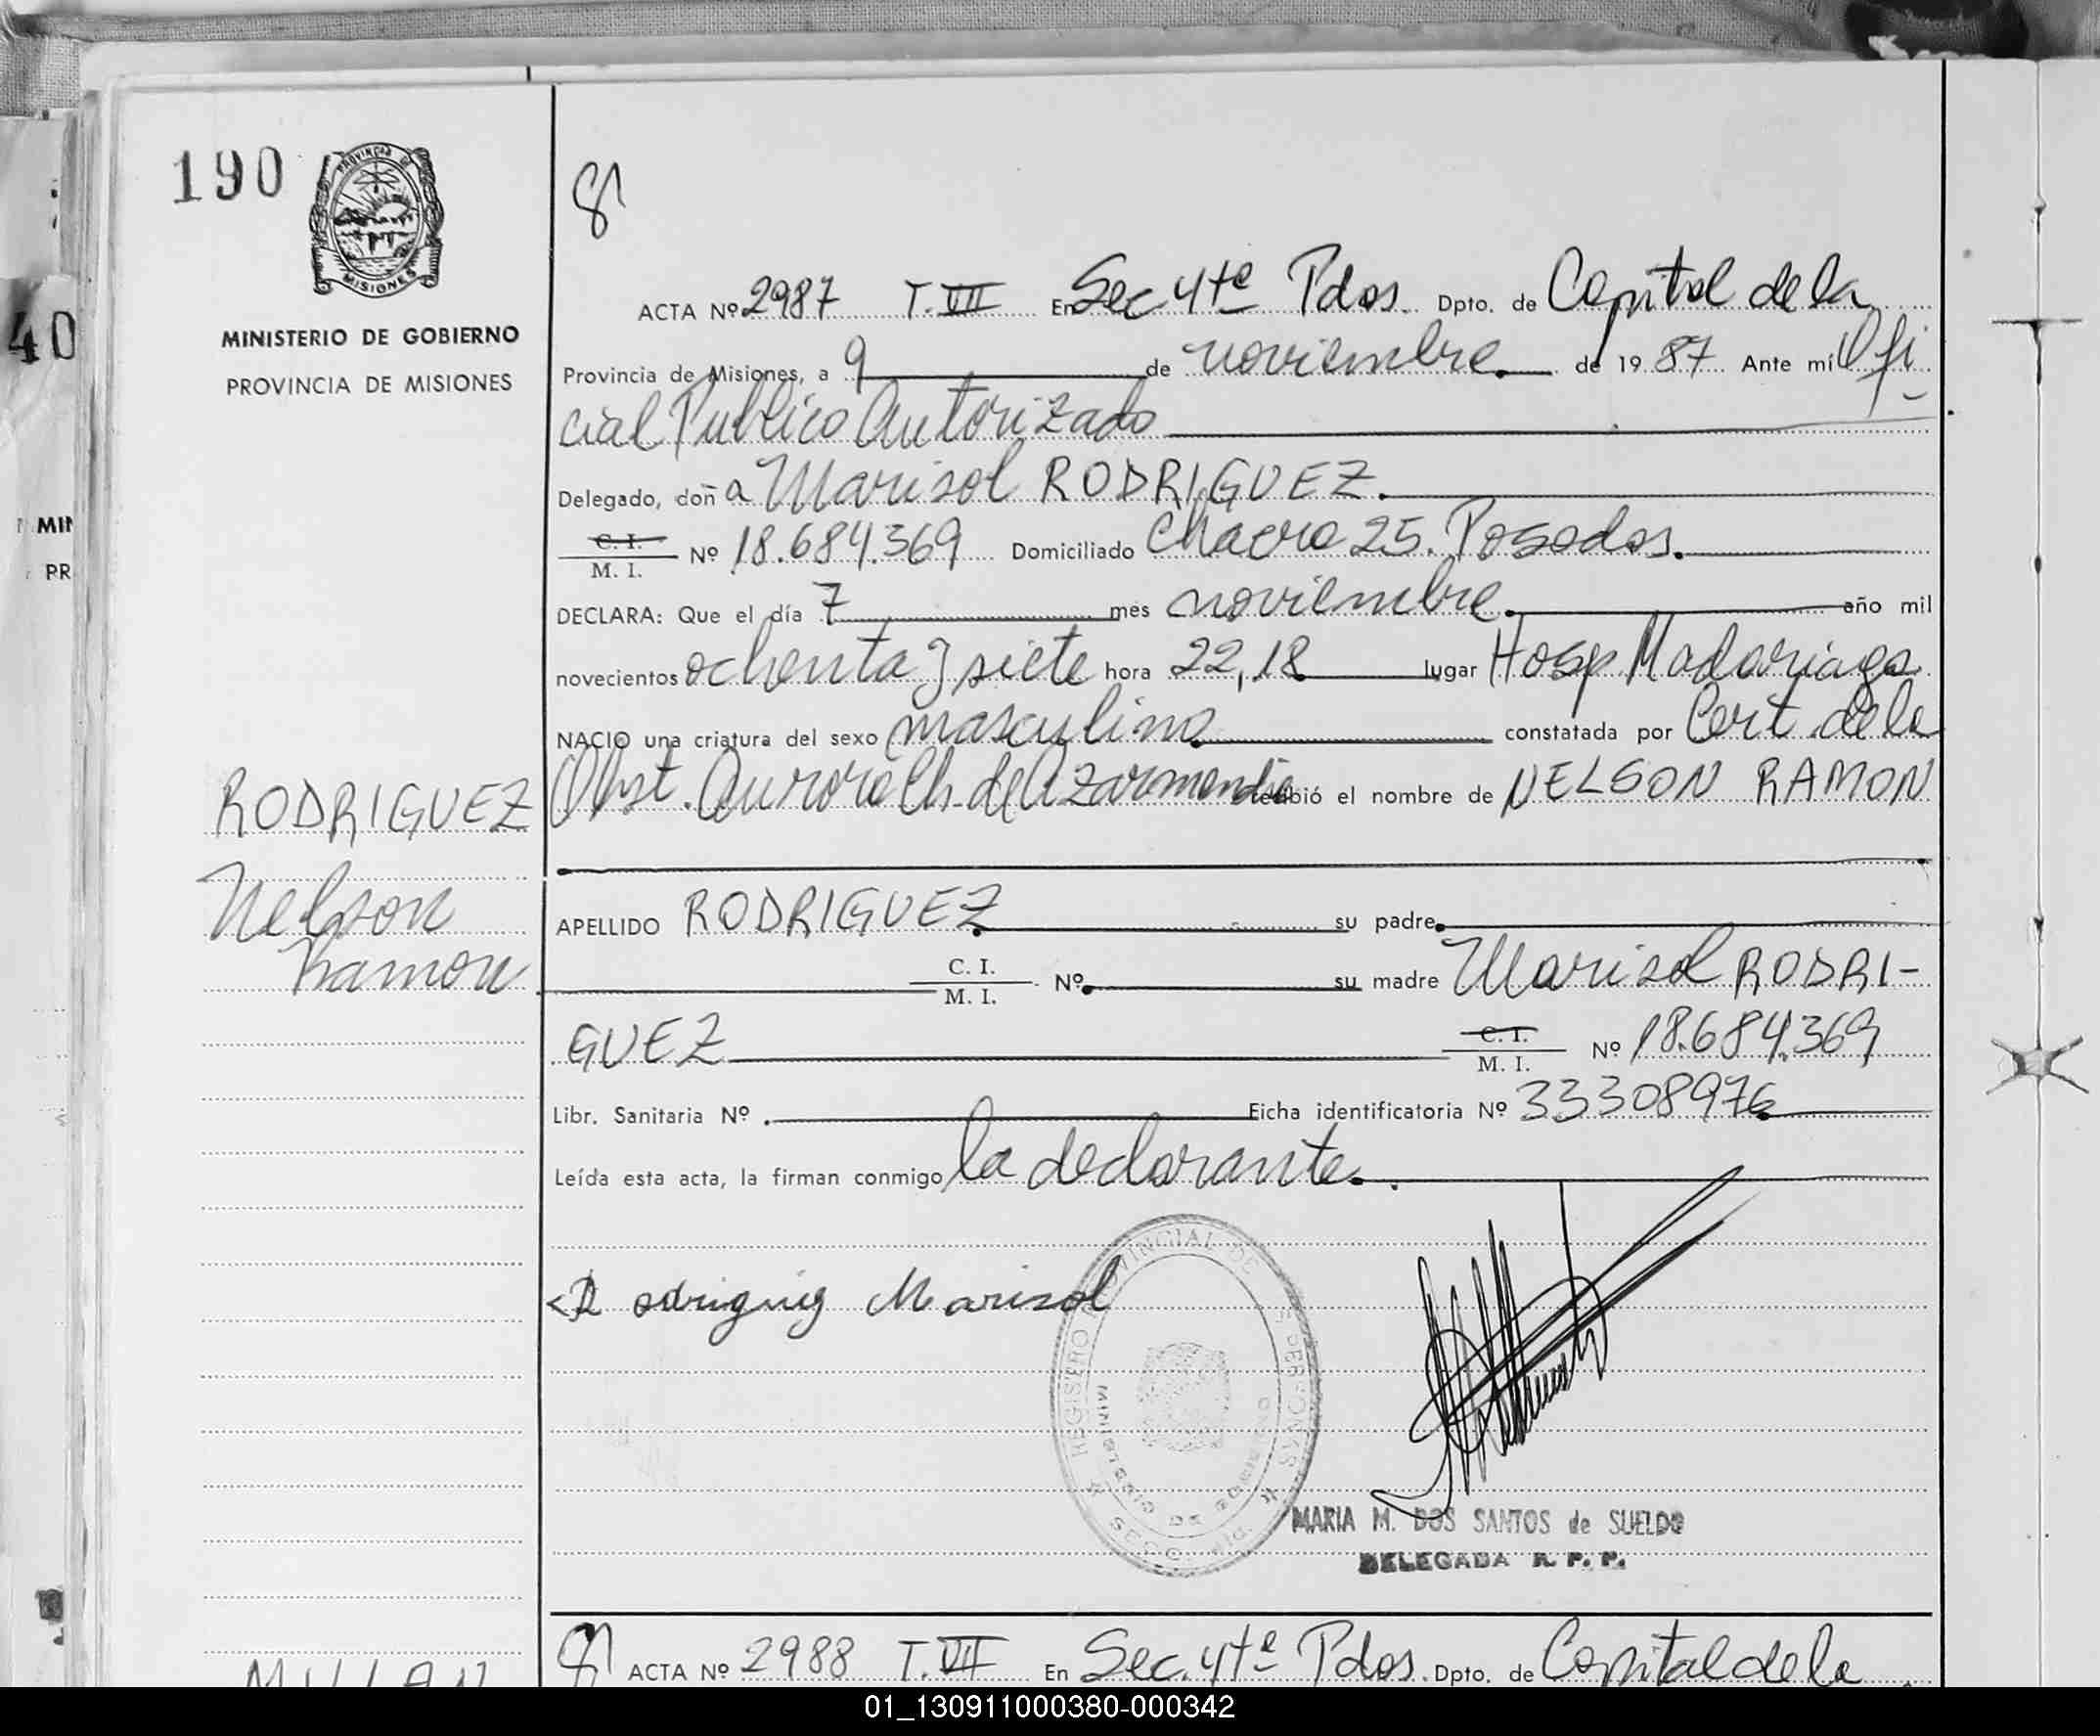 190
PROVINCIA DE
MISIONES
MINISTERIO DE GOBIERNO
PROVINCIA DE MISIONES
40
MIN
PR
ACTA Nº 2987 T. VII En Sec 4te Pdas. Dpto. de Capital de la
Provincia de Misiones, a 9 de noviembre de 1987 Ante mí Ofi
cial Publico Autorizado
Delegado, doña Marisol RODRIGUEZ.
C. I.
M. I. Nº 18.684.369 Domiciliado Chacra 25. Posadas.
DECLARA: Que el día 7 mes noviembre. año mil
novecientos ochenta y siete hora 22,18 lugar Hosp. Madariaga
NACIO una criatura del sexo masculino constatada por Cert. de la
Obst. Aurora Ch. de Azarmendia recibió el nombre de NELSON RAMON
RODRIGUEZ
Nelson
Ramon
APELLIDO RODRIGUEZ su padre
C. I.
M. I. Nº su madre Marisol RODRI-
GUEZ C. I.
M. I. Nº 18.684.369
Libr. Sanitaria Nº Ficha identificatoria Nº 33308976
Leída esta acta, la firman conmigo la declarante.
Rodriguez Marisol
REGISTRO PROVINCIAL DE LAS PERSONAS
MINISTERIO DE GOBIERNO
MARIA M. DOS SANTOS de SUELDO
DELEGADA R. P. P.
MILLAN
ACTA Nº 2988 T. VII En Sec. 4te Pdas. Dpto. de Capital de la
01_130911000380-000342